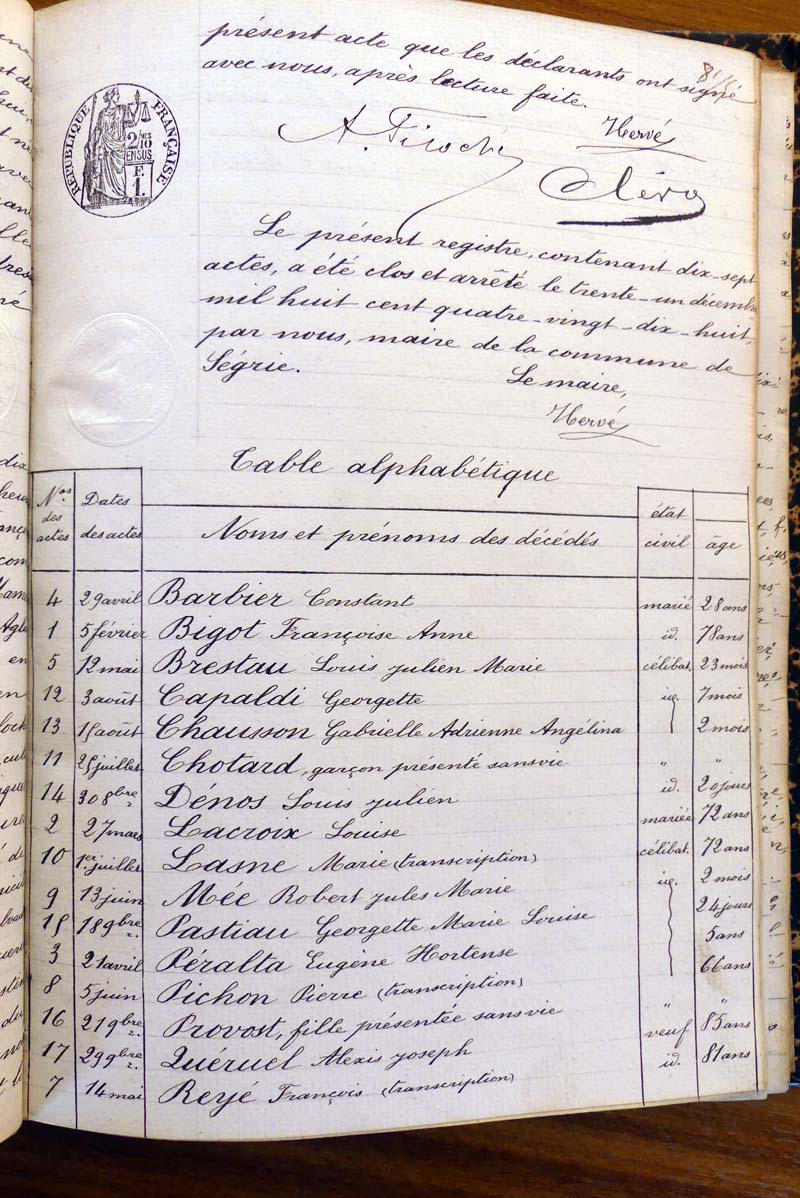 présent acte que les déclarants ont signé
avec nous, après lecture faite.
Hervé
Le présent registre, contenant dix-sept
actes, a été clos et arrêté le trente-un décembre
mil huit cent quatre-vingt-dix-huit,
par nous, maire de la commune de
Ségrie.
Le maire,
Hervé
RÉPUBLIQUE FRANÇAISE
2/10 EN SUS
F. 1.
Table alphabétique
Nos des actes Dates des actes Noms et prénoms des décédés état civil âge
4 29 avril Barbier Constant marié 28 ans
1 5 février Bigot Françoise Anne id. 78 ans
5 12 mai Brestau Louis Julien Marie célibat. 23 mois
12 3 août Capaldi Georgette id. 7 mois
13 15 août Chausson Gabrielle Adrienne Angélina 2 mois
11 25 juillet Chotard, garçon présenté sans vie " "
14 30 8bre Dénos Louis Julien id. 20 jours
2 27 mars Lacroix Louise mariée 72 ans
10 1er juillet Lasne Marie (transcription) célibat. 72 ans
9 13 juin Mée Robert Jules Marie id. 2 mois
15 18 9bre Pastiau Georgette Marie Louise 24 jours
3 21 avril Peralta Eugène Hortense 5 ans
8 5 juin Pichon Pierre (transcription) 66 ans
16 21 9bre Provost, fille présentée sans vie " "
17 29 9bre Queruel Alexis Joseph veuf 85 ans
7 14 mai Reyé François (transcription) id. 81 ans